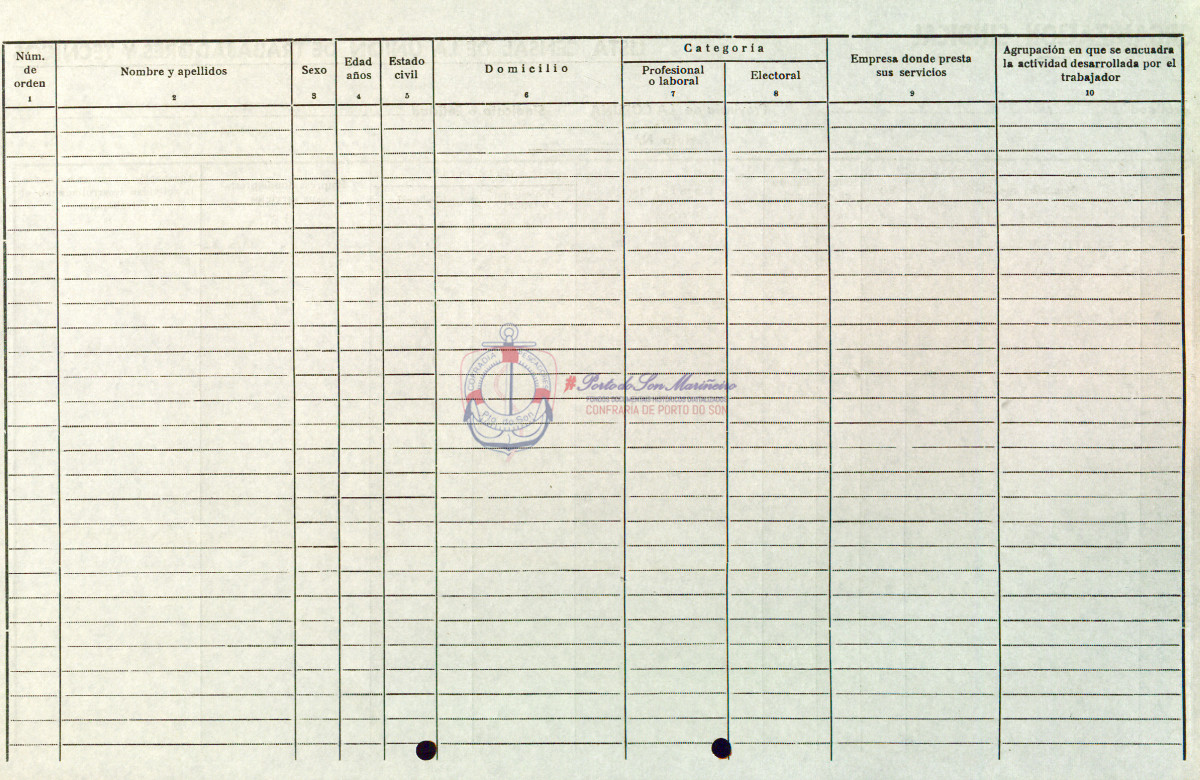 Núm.
de
orden
1
Nombre y apellidos
2
Sexo
3
Edad
años
4
Estado
civil
5
Domicilio
6
Categoría
Profesional
o laboral
7
Electoral
8
Empresa donde presta
sus servicios
9
Agrupación en que se encuadra
la actividad desarrollada por el
trabajador
10
COFRADIA PESCADORES
Pto. do Son
# Porto do Son Mariñeiro
CONFRARÍA DE PORTO DO SON